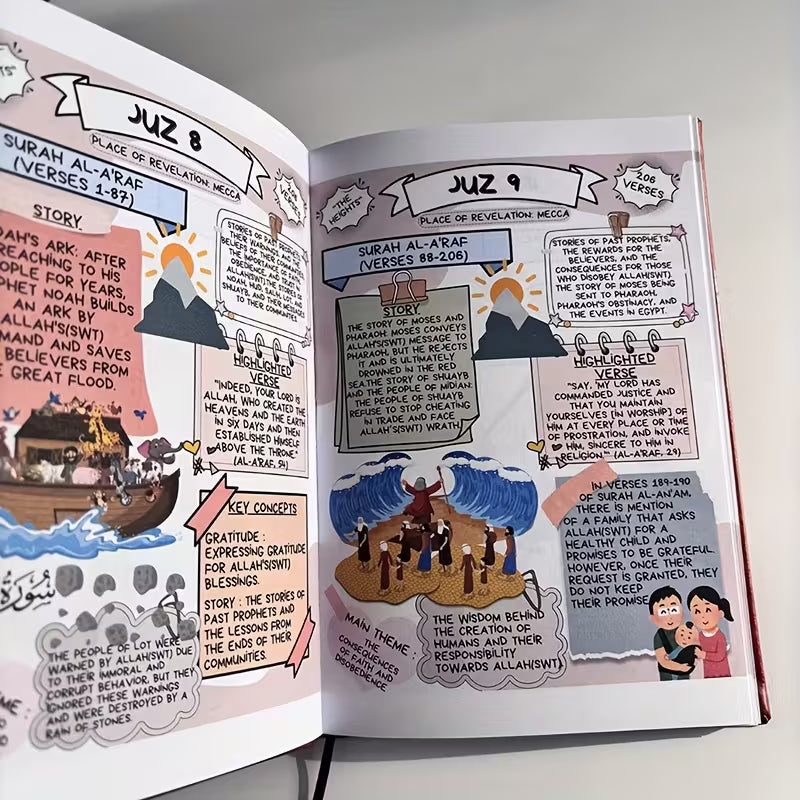 JUZ 8
PLACE OF REVELATION: MECCA
SURAH AL-A'RAF
(VERSES 1-87)
STORY
ARK: AFTER
TO HIS
FOR YEARS,
NOAH BUILDS
AN ARK BY
ALLAH'S(SWT)
AND SAVES
BELIEVERS FROM
GREAT FLOOD.
STORIES OF PAST PROPHETS,
THEIR WARNINGS, AND
BELIEFS OF THEIR
THE IMPORTANCE OF FAITH,
OBEDIENCE, AND TRUST IN
ALLAH(SWT). THE STORIES OF
NOAH, HUD, SALIH, LOT, AND
SHUAYB, AND THEIR MESSAGES
TO THEIR COMMUNITIES.
HIGHLIGHTED
VERSE
"INDEED, YOUR LORD IS
ALLAH, WHO CREATED THE
HEAVENS AND THE EARTH
IN SIX DAYS AND THEN
ESTABLISHED HIMSELF
ABOVE THE THRONE"
(AL-A'RAF, 54)
KEY CONCEPTS
GRATITUDE :
EXPRESSING GRATITUDE
FOR ALLAH'S(SWT)
BLESSINGS.
STORY : THE STORIES OF
PAST PROPHETS AND
THE LESSONS FROM
THE ENDS OF THEIR
COMMUNITIES.
سورة
THE PEOPLE OF LOT WERE
WARNED BY ALLAH(SWT) DUE
TO THEIR IMMORAL AND
CORRUPT BEHAVIOR, BUT THEY
IGNORED THESE WARNINGS
AND WERE DESTROYED BY A
RAIN OF STONES.
JUZ 9
PLACE OF REVELATION: MECCA
"THE
HEIGHTS"
206
VERSES
SURAH AL-A'RAF
(VERSES 88-206)
STORY
THE STORY OF MOSES AND
PHARAOH: MOSES CONVEYS
ALLAH'S(SWT) MESSAGE TO
PHARAOH, BUT HE REJECTS
IT AND IS ULTIMATELY
DROWNED IN THE RED
SEA.THE STORY OF SHUAYB
AND THE PEOPLE OF MIDIAN:
THE PEOPLE OF SHUAYB
REFUSE TO STOP CHEATING
IN TRADE AND FACE
ALLAH'S(SWT) WRATH.
STORIES OF PAST PROPHETS,
THE REWARDS FOR THE
BELIEVERS, AND THE
CONSEQUENCES FOR THOSE
WHO DISOBEY ALLAH(SWT).
THE STORY OF MOSES BEING
SENT TO PHARAOH,
PHARAOH'S OBSTINACY, AND
THE EVENTS IN EGYPT.
HIGHLIGHTED
VERSE
"SAY, 'MY LORD HAS
COMMANDED JUSTICE AND
THAT YOU MAINTAIN
YOURSELVES [IN WORSHIP] OF
HIM AT EVERY PLACE OR TIME
OF PROSTRATION, AND INVOKE
HIM, SINCERE TO HIM IN
RELIGION.'" (AL-A'RAF, 29)
IN VERSES 189-190
OF SURAH AL-AN'AM,
THERE IS MENTION
OF A FAMILY THAT ASKS
ALLAH(SWT) FOR A
HEALTHY CHILD AND
PROMISES TO BE GRATEFUL.
HOWEVER, ONCE THEIR
REQUEST IS GRANTED, THEY
DO NOT KEEP
THEIR PROMISE
MAIN THEME :
THE
CONSEQUENCES
OF FAITH AND
DISOBEDIENCE
THE WISDOM BEHIND
THE CREATION OF
HUMANS AND THEIR
RESPONSIBILITY
TOWARDS ALLAH(SWT)